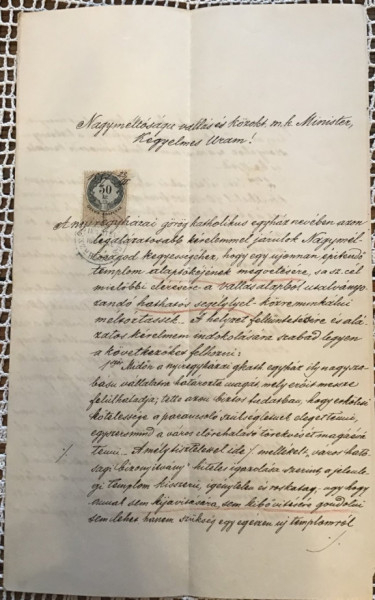 Nagyméltóságu vallás és közokt. m. k. Minister,
Kegyelmes Uram!
50
A nyiregyházai görög katholikus egyház nevében azon
legalázatosabb kérelemmel járulok Nagymél-
tóságod kegyességéhez, hogy egy ujonnan építendő
templom alapkőjének megvetésére, s a cél
mielőbbi elérésére a vallásalapból utalványo-
zandó hathatós segélylyel közremunkálni
méltóztassék. A helyzet feltüntetésére és alá-
zatos kérelmem indokolására szabad legyen
a következőket felhozni:
1ször Midőn a nyiregyházi gkath egyház ily nagysza-
básu vállalatra határozta magát, mely erőit messze
felülhaladja; tette azon biztos tudatban, hogy erkölcsi
kötelessége a parancsoló szükségletnek eleget tenni,
egyszersmind a város előrehaladó törekvését magáévá
tenni. A mély tisztelettel ide ./. mellékelt városi ható-
sági bizonyitvány hiteles igazolása szerint, a jelenle-
gi templom kisszerü, igénytelen és roskatag, ugy hogy
annak sem kijavitására, sem kibővitésére gondolni
sem lehet, hanem szükség egy egészen uj templomról
./.